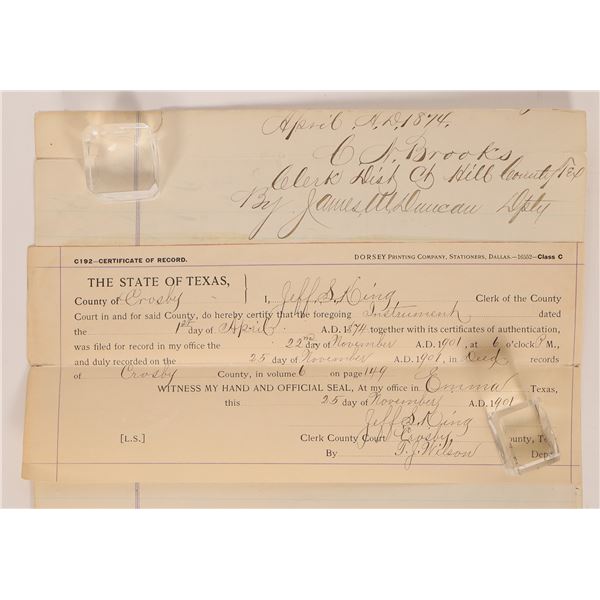 April A.D. 1874.
C N Brooks
Clerk Dist Ct Hill County Tex
By James M Duncan Dpty
C192—CERTIFICATE OF RECORD.
DORSEY PRINTING COMPANY, STATIONERS, DALLAS.—16552—Class C
THE STATE OF TEXAS,
County of Crosby I, Jeff S. King Clerk of the County
Court in and for said County, do hereby certify that the foregoing Instrument dated
the 1st day of April A.D. 1874 together with its certificates of authentication,
was filed for record in my office the 22nd day of November A.D. 1901, at 6 o'clock P M.,
and duly recorded on the 25 day of November A.D. 1901, in Deed records
of Crosby County, in volume 6 on page 149
WITNESS MY HAND AND OFFICIAL SEAL, At my office in Emma Texas,
this 25 day of November A.D. 1901
Jeff S. King
[L.S.] Clerk County Court Crosby County, Te
By T. J. Wilson Dep